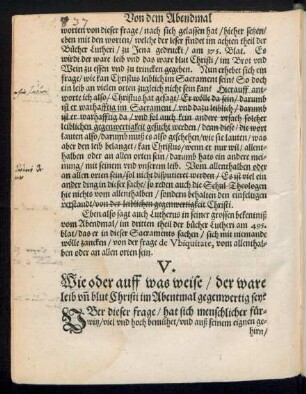 Von dem Abendmal
worten von dieser frage / nach sich gelassen hat / hieher setzen /
eben mit den worten / welche der leser findet im achten theil der
Bücher Lutheri / zu Jena gedruckt / am 375. Blat. Es
wirdt der ware leib vnd das ware blut Christi / im Brot vnd
Wein zu essen vnd zu trincken gegeben. Nun erhebet sich ein
frage / wie kan Christus leiblich im Sacrament sein? So doch
ein leib an vielen orten zugleich nicht sein kan? Hierauff ant-
worte ich also / Christus hat gesagt / Er wölle da sein / darumb
ist er warhafftig im Sacrament / vnd dazu leiblich / darumb
ist er warhafftig da / vnd sol auch kein andere vrsach solcher
leiblichen gegenwertigkeit gesucht werden / denn diese / die wort
lauten also / darumb muß es also geschehen / wie sie lauten / was
aber den leib belanget / kan Christus / wenn er nur wil / allent-
halben oder an allen orten sein / darumb hats ein andere mei-
nung / mit seinem vnd vnserem leib. Vom allenthalben oder
an allen orten sein / sol nicht disputieret werden / Es ist viel ein
ander ding in dieser sache / so reden auch die Schul Theologen
hie nichts vom allenthalben / sondern behalten den einfeltigen
verstandt / von der leiblichen gegenwertigkeit Christi.
Eben also sagt auch Lutherus in seiner grossen bekentniß
vom Abendmal / im dritten theil der bücher Lutheri am 495.
blat / das er in dieser Sacraments sachen / sich mit niemande
wölle zancken / von der frage de Vbiquitate, vom allenthal-
ben oder an allen orten sein.
V.
Wie oder auff was weise / der ware
leib vñ blut Christi im Abentmal gegenwertig sey?
VBer dieser frage / hat sich menschlicher für-
witz / viel vnd hoch bemühet / vnd auß seinem eignen ge-
hirn /